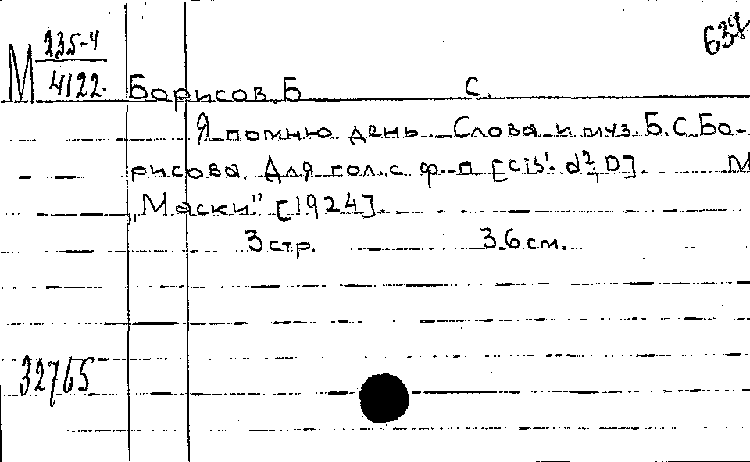 637
М 235-4
4122.
Борисов, Б С.
Я помню день. Слова и муз. Б.С. Бо-
рисова. Для гол. с ф-п [cis¹-d², D]. М
„Маски" [1924].
3 стр. 36 см.
32765